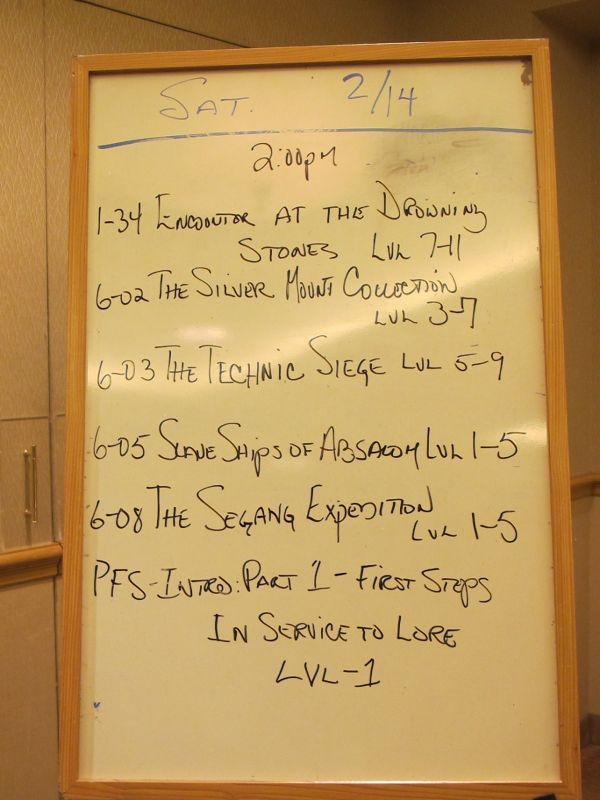 SAT. 2/14
2:00pm
1-34 ENCOUNTOR AT THE DROWNING
STONES LVL 7-11
6-02 THE SILVER MOUNT COLLECTION
LVL 3-7
6-03 THE TECHNIC SIEGE LVL 5-9
6-05 SLAVE SHIPS OF ABSALOM LVL 1-5
6-08 THE SEGANG EXPEDITION
LVL 1-5
PFS-INTRO: PART 1 - FIRST STEPS
IN SERVICE TO LORE
LVL-1